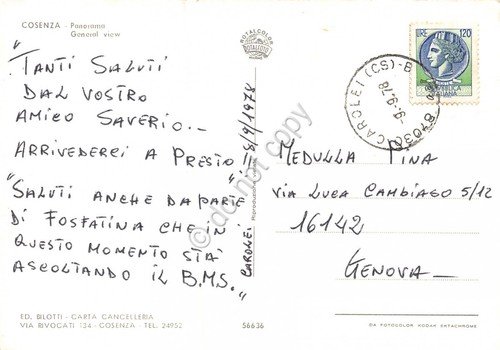 COSENZA - Panorama
General view
ROTALCOLOR
ROTALFOTO
"TANTI SALUTI
DAL VOSTRO
AMICO SAVERIO.-
ARRIVEDERCI A PRESTO!!
"SALUTI ANCHE DA PARTE
DI FOSFATINA CHE IN
QUESTO MOMENTO STA'
ASCOLTANDO IL B.M.S."
CAROLEI 8/9/1978
ED. BILOTTI - CARTA CANCELLERIA
VIA RIVOCATI 134 - COSENZA - TEL. 24952
56636
do not copy
LIRE 120
87030 CAROLEI (CS) - B
9-9-78
MEDULLA PINA
VIA LUCA CAMBIASO 5/12
16142
GENOVA-
DA FOTOCOLOR KODAK EKTACHROME